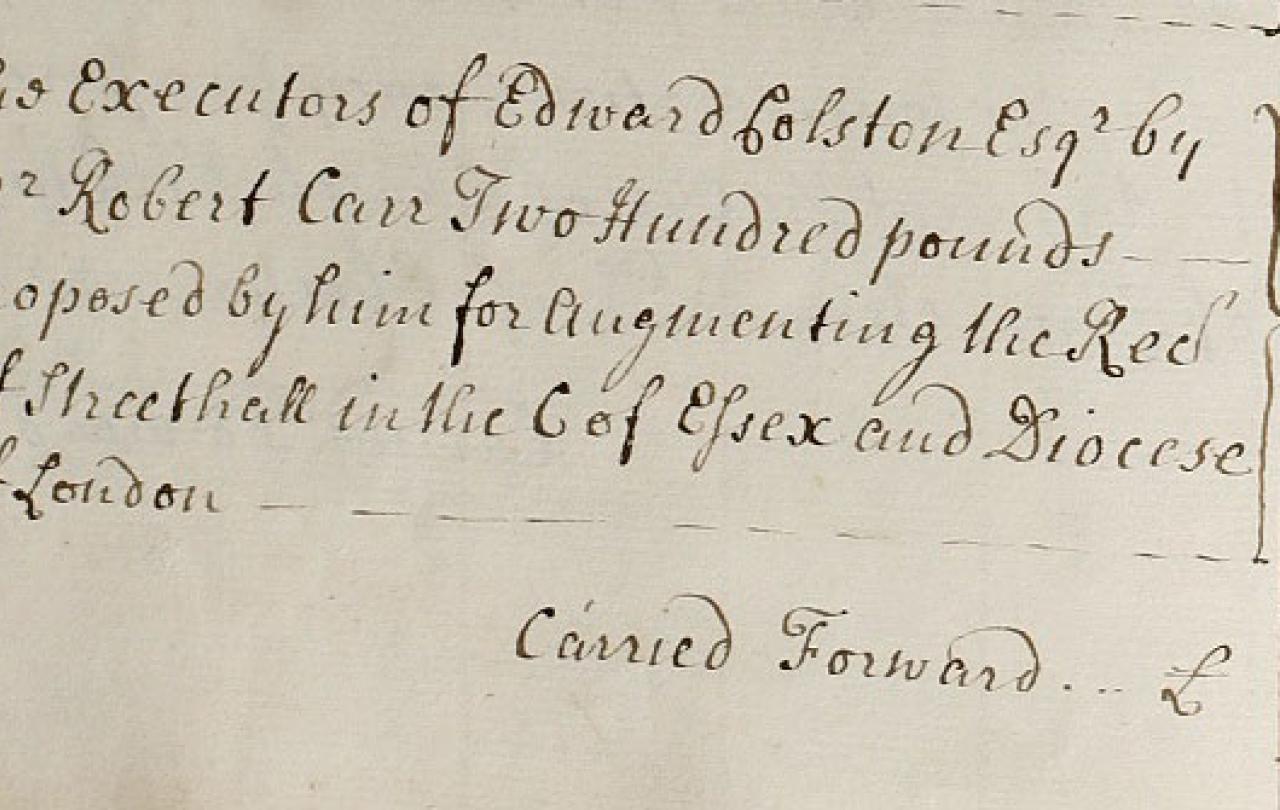 he Executors of Edward Colston Esqr by
r Robert Carr Two Hundred pounds
oposed by him for Augmenting the Rec
f Streethall in the C of Essex and Diocese
f London
Carried Forward... £